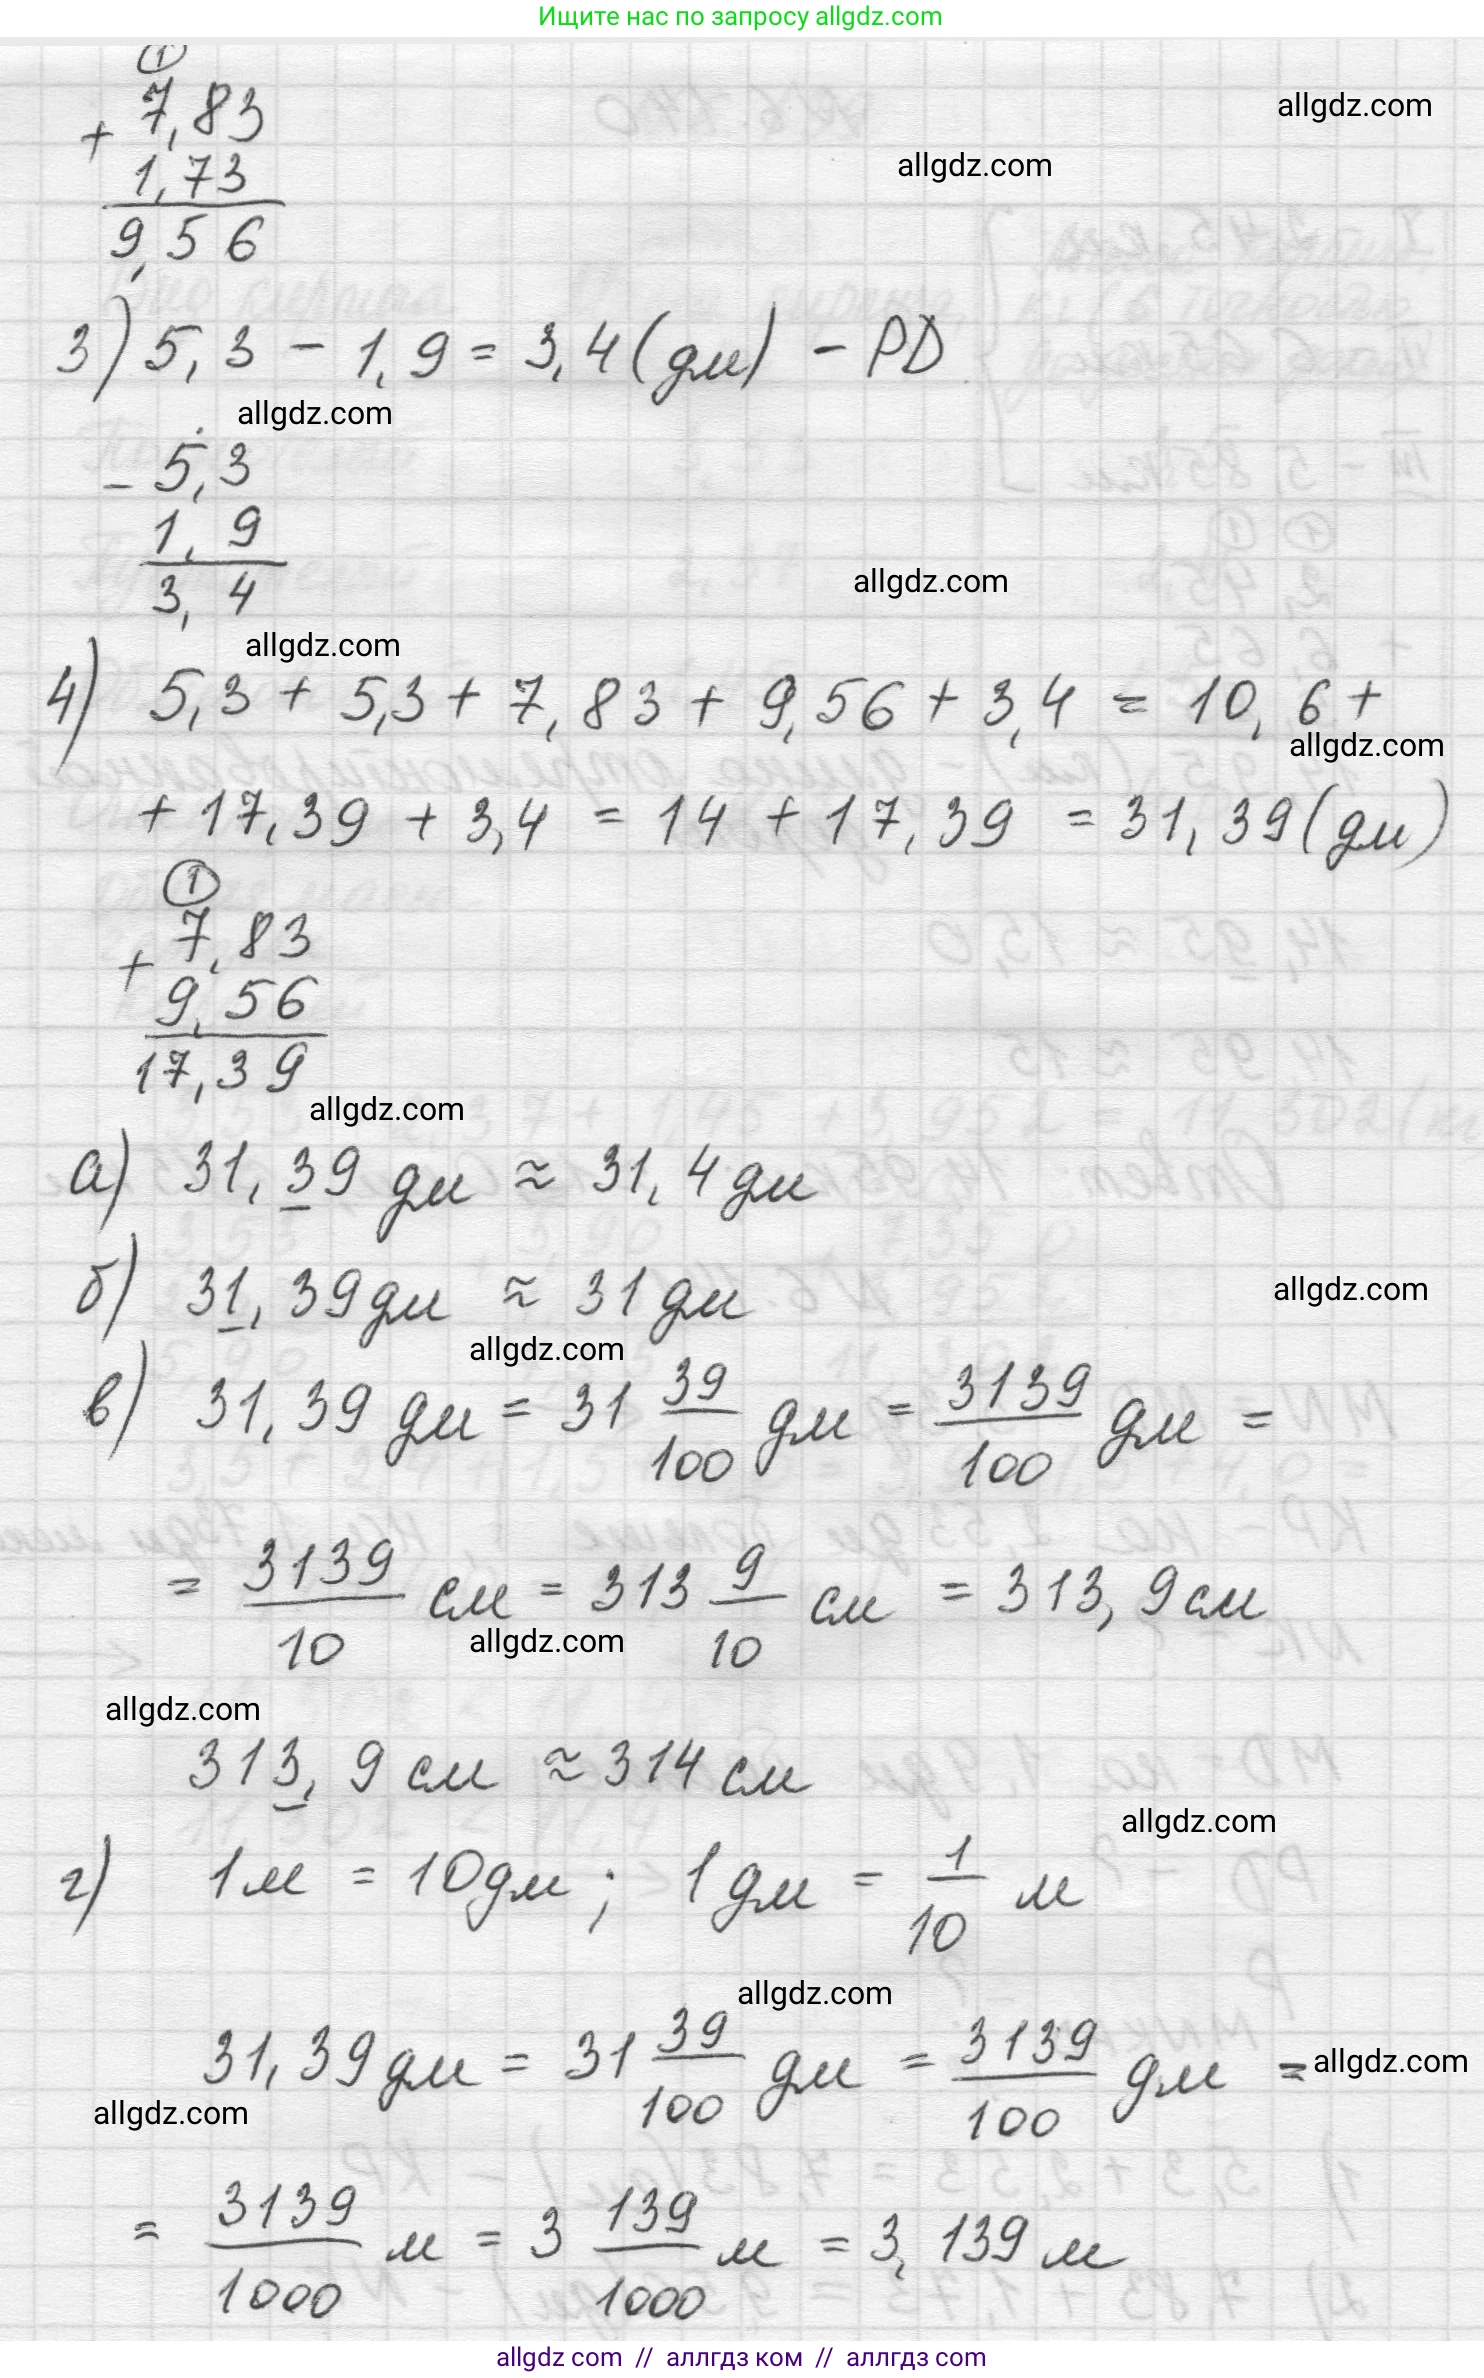 Ищите нас по запросу allgdz.com
①
+ 7,83
allgdz.com
allgdz.com
1,73
9,56
3) 5,3 - 1,9 = 3,4 (дм) - PD
allgdz.com
- 5,3
1,9
3,4
allgdz.com
allgdz.com
4) 5,3 + 5,3 + 7,83 + 9,56 + 3,4 = 10,6 +
allgdz.com
+ 17,39 + 3,4 = 14 + 17,39 = 31,39 (дм)
①
+ 7,83
9,56
17,39
allgdz.com
а) 31,39 дм ≈ 31,4 дм
б) 31,39 дм ≈ 31 дм
allgdz.com
allgdz.com
в) 31,39 дм = 31 39/100 дм = 3139/100 дм =
= 3139/10 см = 313 9/10 см = 313,9 см
allgdz.com
allgdz.com
313,9 см ≈ 314 см
allgdz.com
г) 1 м = 10 дм; 1 дм = 1/10 м
allgdz.com
31,39 дм = 31 39/100 дм = 3139/100 дм =
allgdz.com
allgdz.com
= 3139/1000 м = 3 139/1000 м = 3,139 м
allgdz com // аллгдз ком // аллгдз com